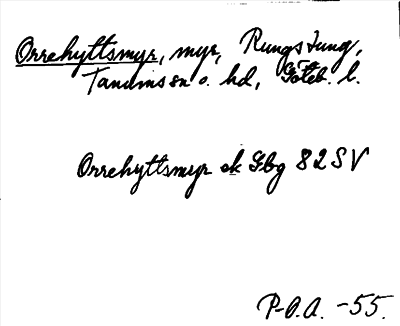 Orrehyttsmyr, myr, Rungstung,
Tanums sn o. hd, Göteb. l.
Orrehyttsmyr ek Gbg 82 SV
P-O.A. -55.